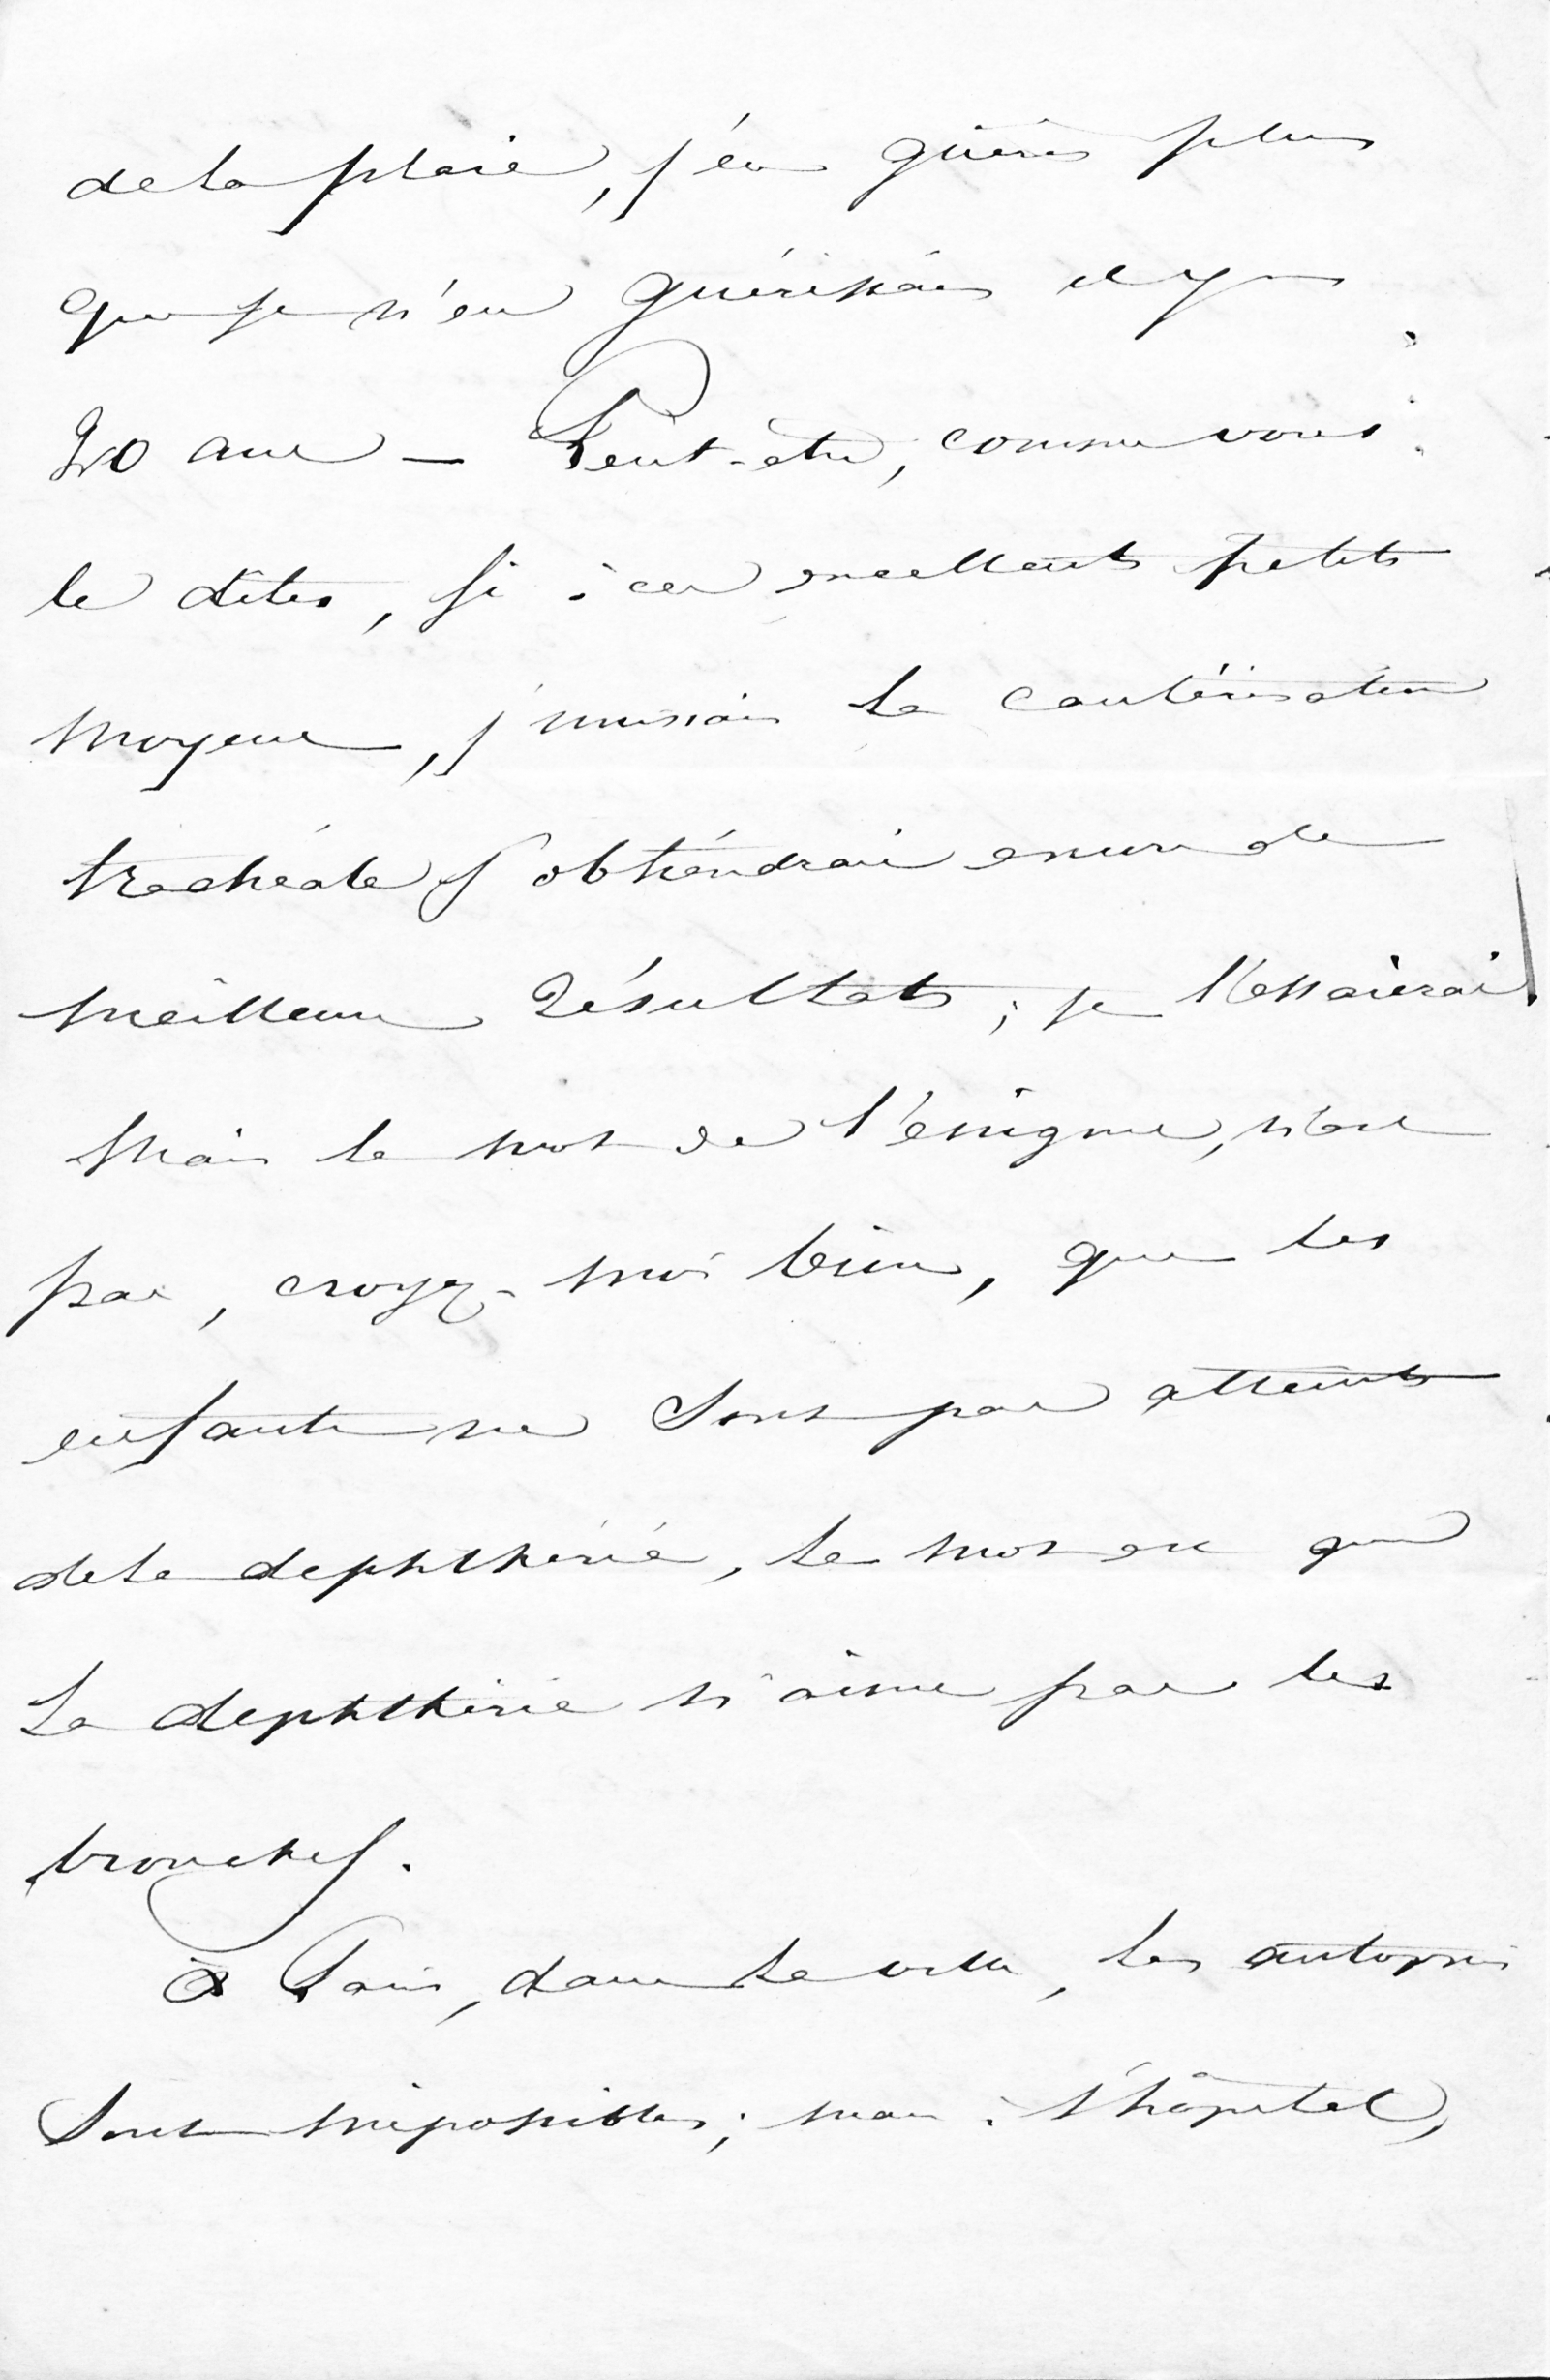 de la plaie, j'en guéris plus
que je n'en guérissais il y a
20 ans — Peut-être, comme vous
le dites, si à ces excellents petits
moyens, j'unissais la cautérisation
trachéale j'obtiendrais encore de
meilleurs résultats ; je l'essaierai.
Mais le mot de l'énigme, n'est
pas, croyez-moi bien, que les
enfants ne sont pas atteints
de la diphthérie, le mot est que
la diphthérie n'aime pas les
bronches.
à Paris, dans la ville, les autopsies
sont impossibles ; mais à l'hôpital,